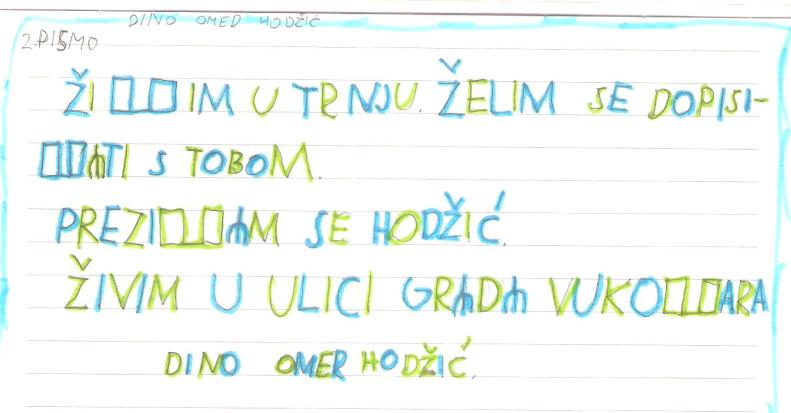 DINO OMER HODŽIĆ
2. PISMO
ŽI▯▯IM U TRNJU. ŽELIM SE DOPISI-
▯▯⋔TI S TOBOM.
PREZI▯▯⋔M SE HODŽIĆ.
ŽIVIM U ULICI GR⋔D⋔ VUKO▯▯ARA
DINO OMER HODŽIĆ.